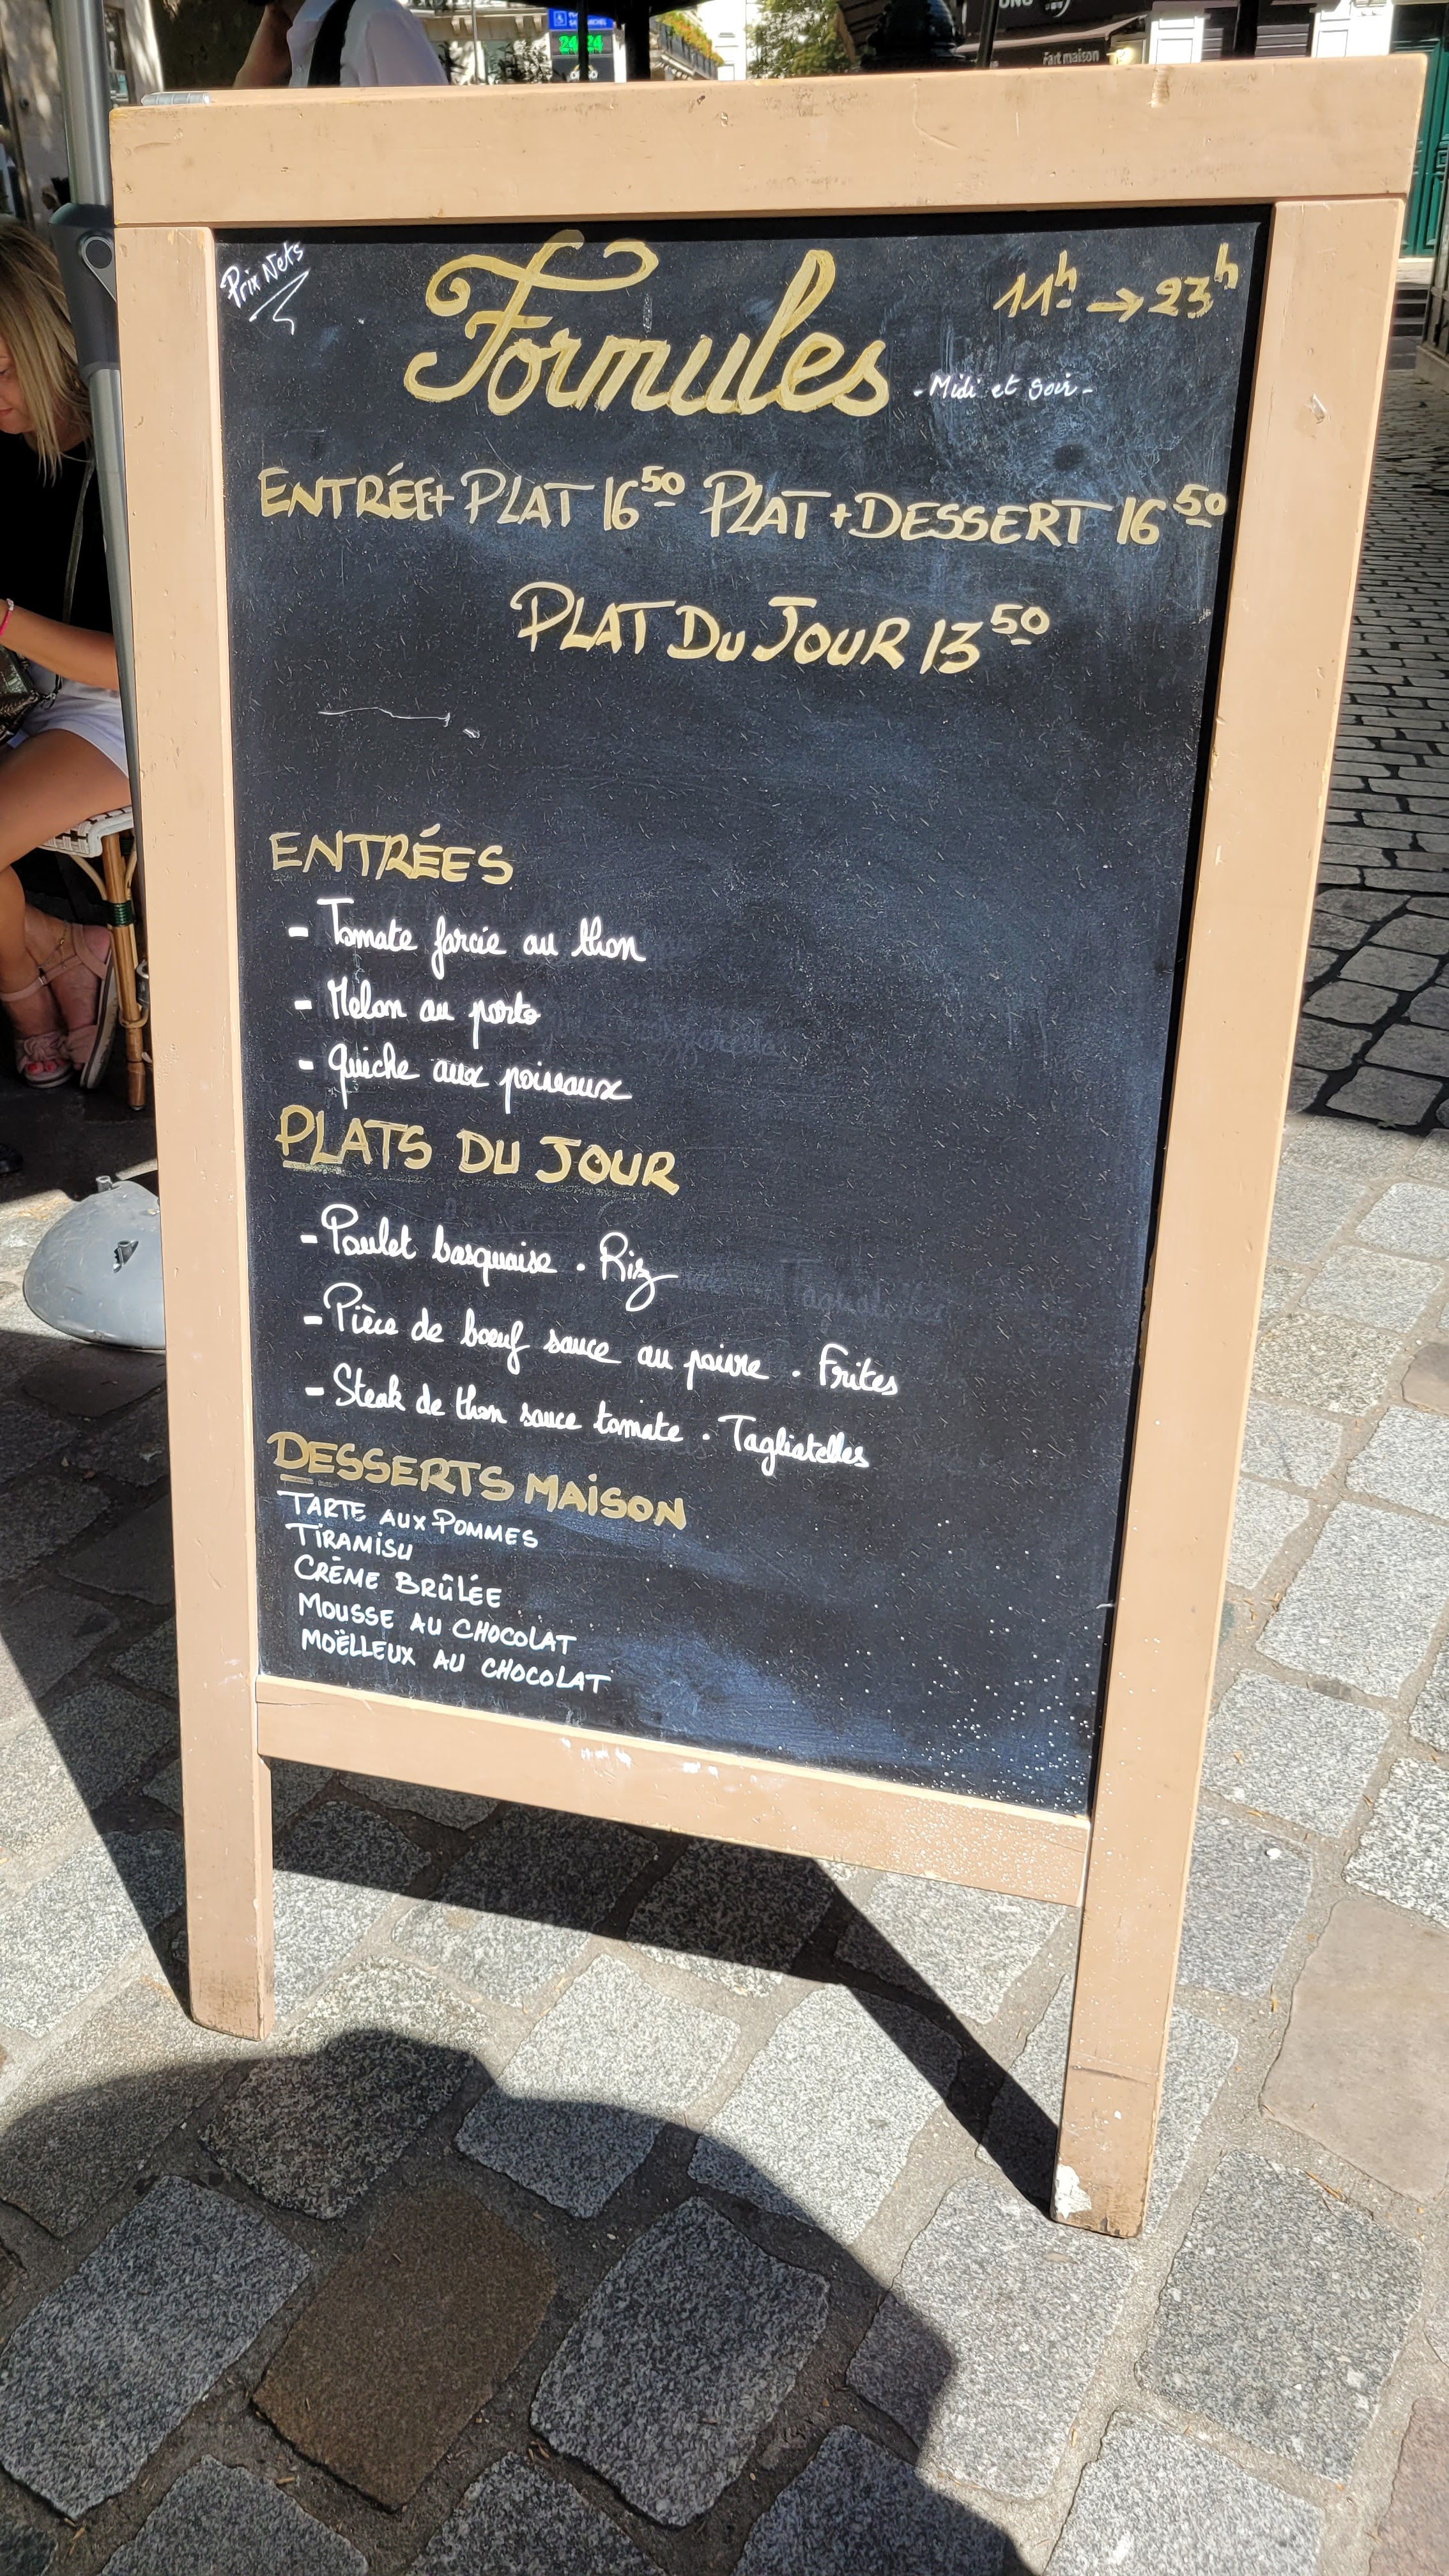 Fait maison
24 24
Prix Nets
Formules
11h → 23h
- Midi et Soir -
ENTRÉE + PLAT 16 50 PLAT + DESSERT 16 50
PLAT DU JOUR 13 50
ENTRÉES
- Tomate farcie au thon
- Melon au porto
- Quiche aux poireaux
PLATS DU JOUR
- Poulet basquaise . Riz
- Pièce de boeuf sauce au poivre . Frites
- Steak de thon sauce tomate . Tagliatelles
DESSERTS MAISON
TARTE AUX POMMES
TIRAMISU
CRÈME BRÛLÉE
MOUSSE AU CHOCOLAT
MOËLLEUX AU CHOCOLAT